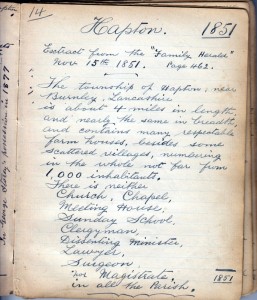 14
Hapton. 1851
Extract from the "Family Herald"
Nov 15th 1851. Page 462.
The township of Hapton, near
Burnley, Lancashire
is about 4 miles in length,
and nearly the same in breadth,
and contains many respectable
farm houses, besides some
scattered vileages, numbering
in the whole not far from
1,000 inhabitants.
There is neither
Church, Chapel,
Meeting House,
Sunday School,
Clergyman,
Dissenting Minister,
Lawyer,
Surgeon
nor Magistrate,
in all the Parish.
1851
possession in 1877